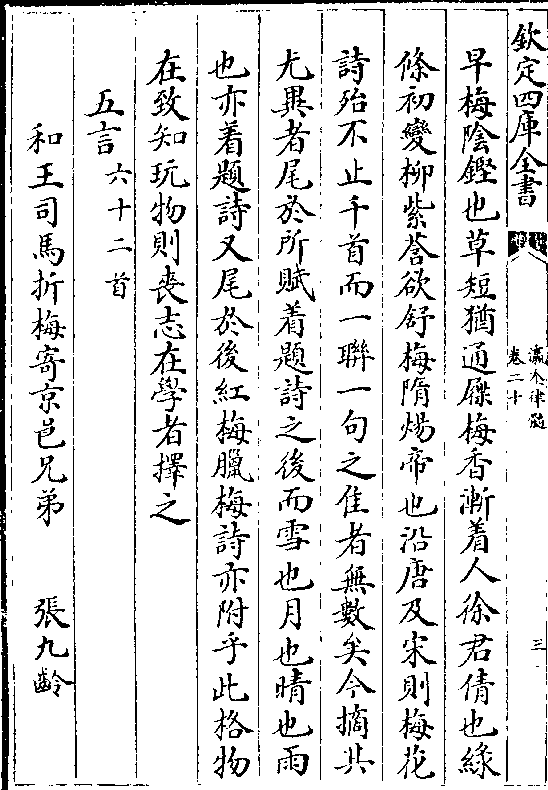 欽定四庫全書
瀛奎律髓
卷二十
三
早梅陰鏗也草短猶通屧梅香漸着人徐君倩也緑
條初變柳紫蕚欲舒梅隋煬帝也沿唐及宋則梅花
詩殆不止千首而一聯一句之佳者無數矣今摘其
尤異者尾於所賦着題詩之後而雪也月也晴也雨
也亦着題詩又尾於後紅梅臘梅詩亦附乎此格物
在致知玩物則喪志在學者擇之
五言六十二首
和王司馬折梅寄京邑兄弟 張九齡